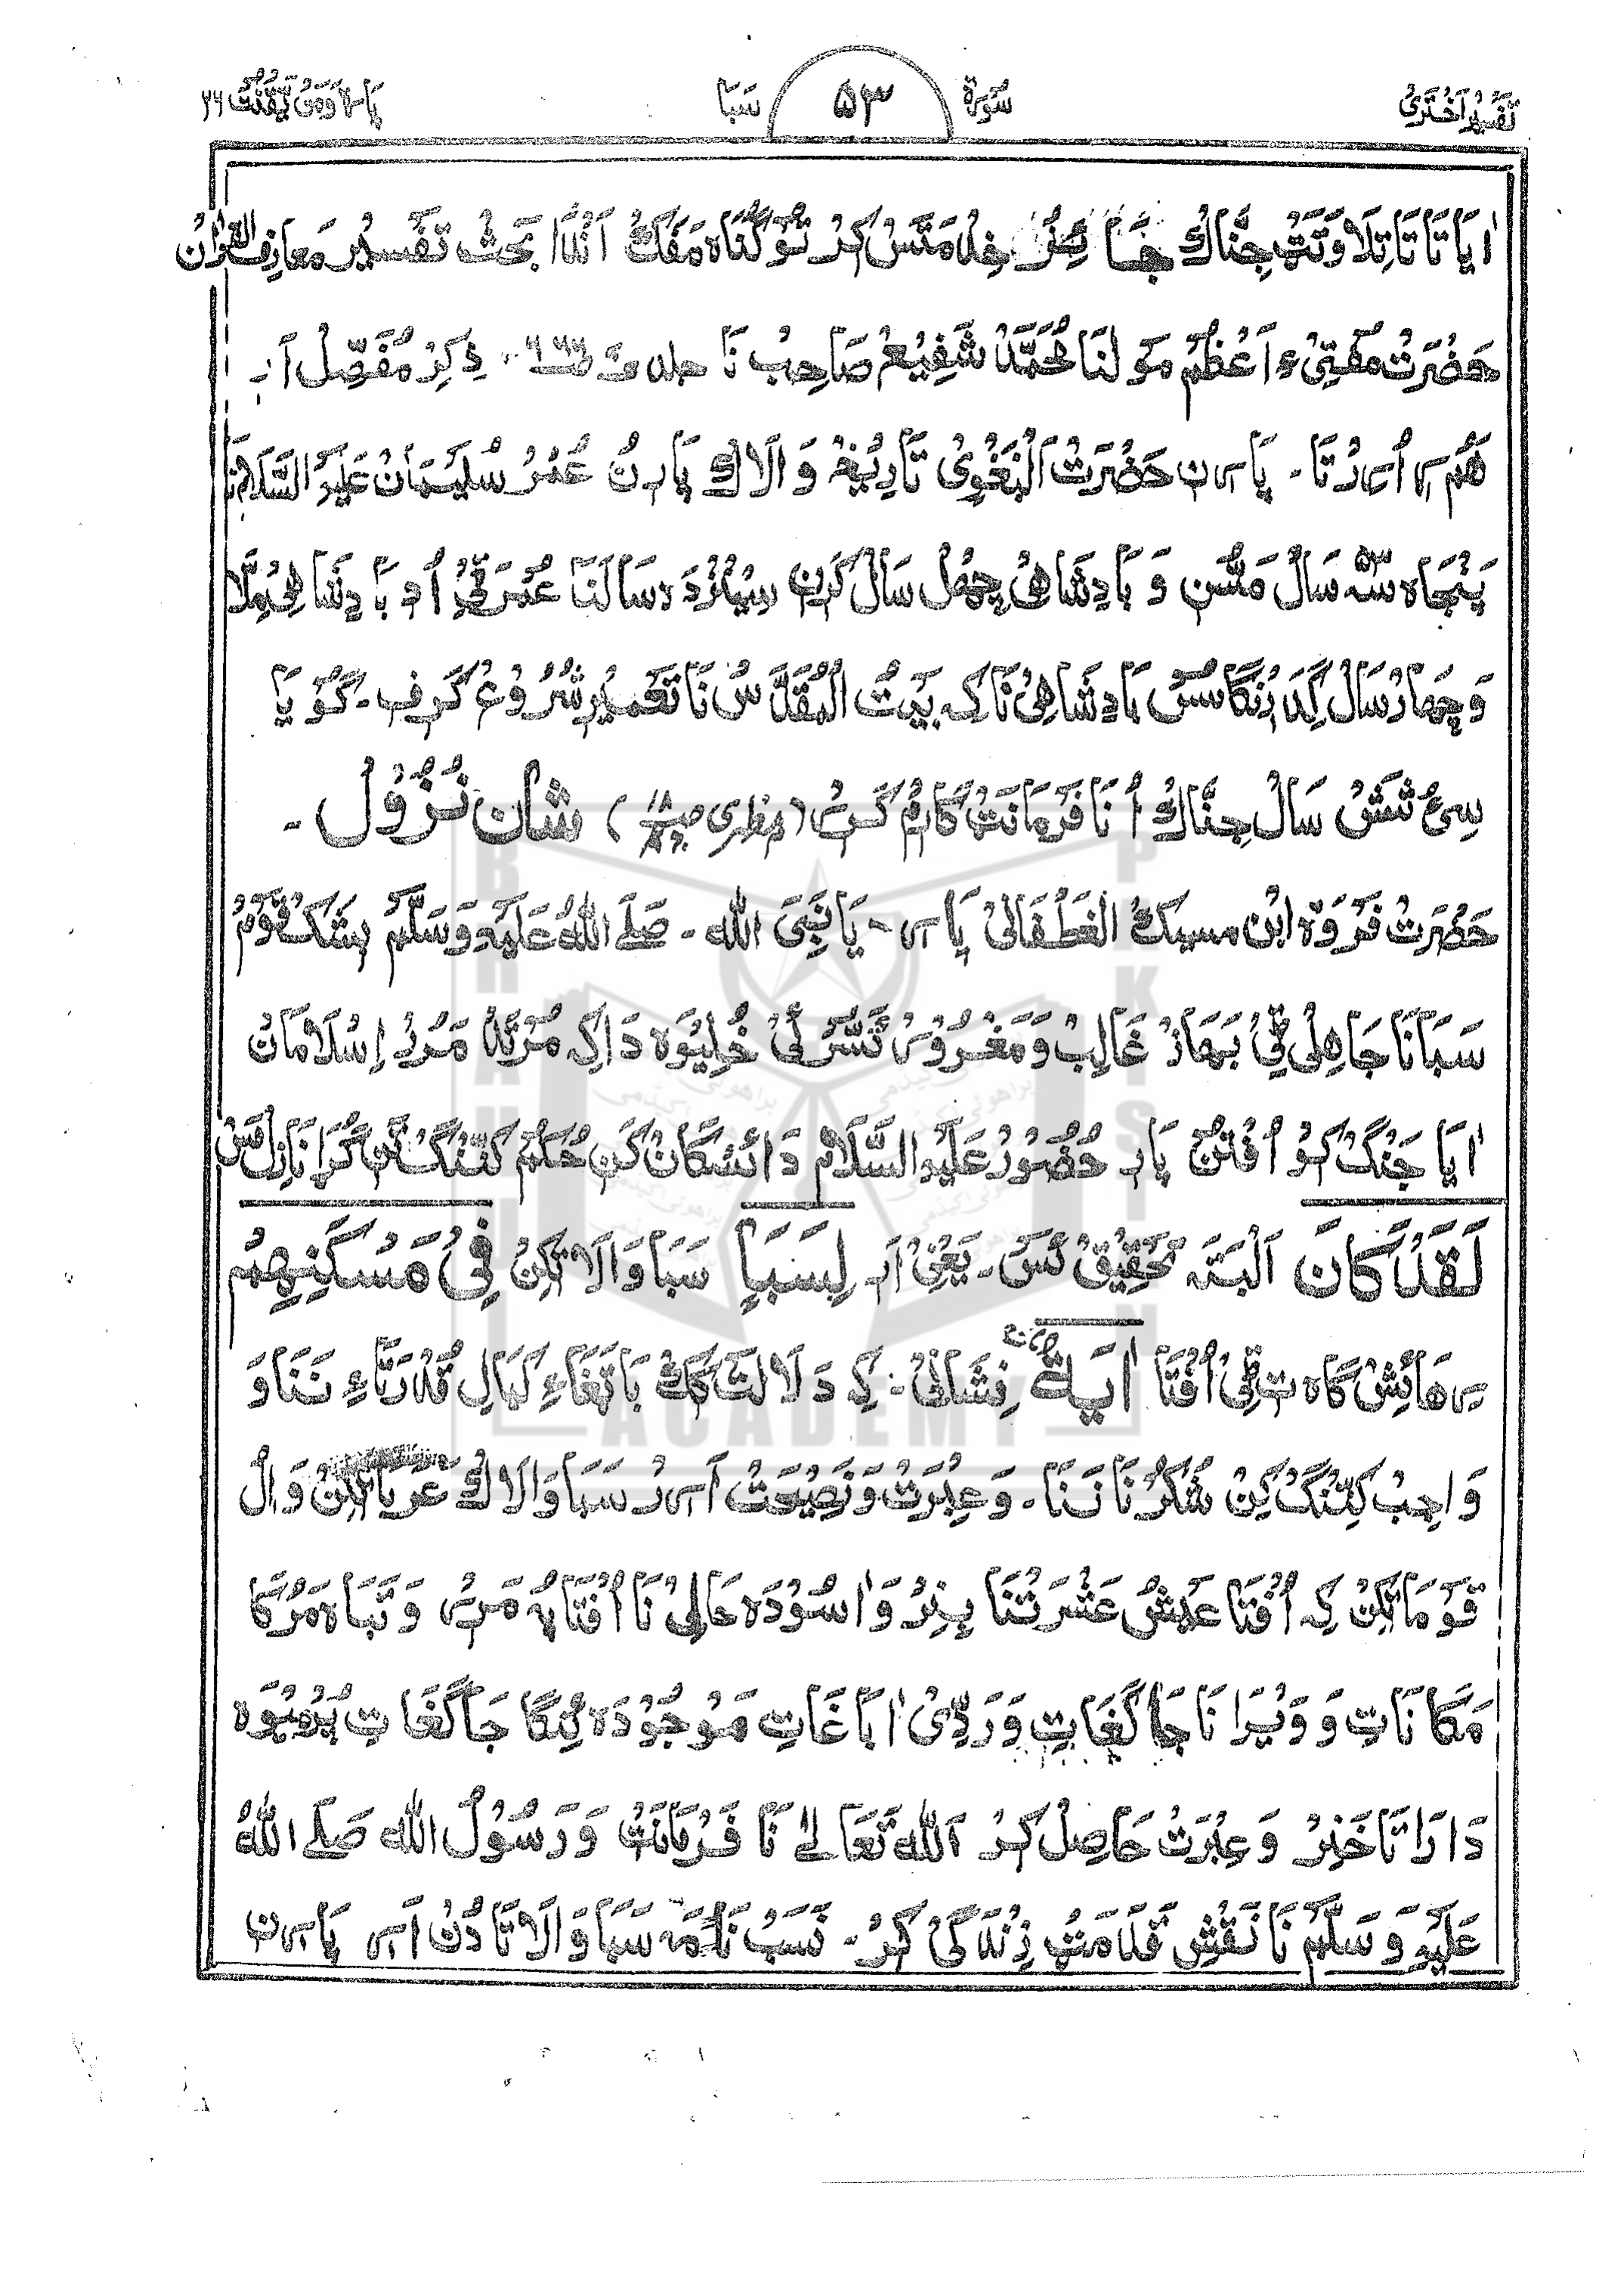 تَفْسِیْرِ اَخْتَرِیْ سُوْرَة ۵۳ سَبَا پَارَہ وَمَنْ یَّقْنُتْ ۲۲
اٰیَا تَا تَا تِلَاوَتَتْ جِنَّاکْ خِدْمَتَسْ کَرْ تَوْ گُنَاہ مَفَکْ اَنْدَا بَحَثْ تَفْسِیْرِ مَعَارِفُ الْقُرْاٰنْ
حَضْرَتْ مُفْتِیْءِ اَعْظَمْ مَوْلٰنَا مُحَمَّدْ شَفِیْعْ صَاحِبْ نَا جلد ذِکِرْ مُفَصِّلْ آ
ھُمْ اُرِتَا ۔ پَارِہ ن حَضْرَتْ اَلْبَغْوِیْ تَارِیْخْ وَالَاکْ پَارہ نْ عُمْرْ سُلَیْمَانْ عَلَیْہِ السَّلَامْ نَا
پَنْجَاہ سَہْ سَالْ مَسُّن وَ بَادِشَاھِیْ چِھْل سَالْ کَرِن سِیْنْزدَہ سَالَنَا عُمْرَ ٹِیْ اُد بَادِشَاھِیْ مِلَّا
وَ چَھَارْ سَالْ گِدَرِنْگَا سُسْ بَادِشَاھِیْ نَا کِہ بَیْتُ الْمُقَدَّسْ نَا تَعْمِیْرِ شُرُوْعْ کَرِف ۔ گَوْیَا
سِیْ شَشْ سَالْ جِنَّاکْ اُنَا فَرْمَانَٹْ کَارِمْ کَرِسْ ( مظہری ) شان نُزُوْلْ ۔
حَضْرَتْ فَرْوَة ابْن مسیک الْغَطْفَانِیْ پَارے ۔ یَا نَبِیَ اللّٰہ ۔ صَلَے اللّٰہُ عَلَیْہِ وَسَلَّمْ بِشَکْ قَوْمْ
سَبَا نَا جَاھِلِیْ ٹِیْ بَھَازْ غَالِبْ وَ مَغْرُوْرْ نَسّر ئِیْ خُلِیْوَہ دَاکِہ مُرْتَدْ مَرِدْ اِسْلَامَانْ
اٰیَا جَنْگ کَوْ اُفْتِنْ پَارہ حُضُوْرْ عَلَیْہِ السَّلَامْ دَائِسْکَانْ کَن حُکُمْ کَنَنْگ تَن گُرَا نَازِلْ مَسْ
لَقَدْ کَانَ اَلْبَتَہ تَحْقِیْقْ ئَسْ ۔ یَعْنِیْ اَرہ لِسَبَإٍ سَبَا وَالَا تِکِنْ فِیْ مَسْکَنِهِمْ
رِھَائِشْ گَاہ تِ ٹِیْ اُفْتَا اٰیَةٌ نِشَانِیْ :۔ کِہ دَلَالَتْ کَکْ بَاتَغَاءِ کَمَالِ قُدْرَتَاءِ نَنَا وَ
وَاجِبْ کَنِنْگ کِنْ شُکُرْ نَا نَنَا ۔ وَ عِبْرَتْ وَ نَصِیْحَتْ اَرے سَبَا وَالَاکْ عَرَبَا تِکِنْ وَالْ
قَوْمَا تِکِنْ کِہ اُفْتَا عَیْشُ عَشْرَتْنَا بِنِرْ وَ اٰسُوْدَہ حَالِیْ نَا اُفْتَا پُہ مَرِے وَ تَبَاہ مَرُکَا
مَکَانَاتِ وَ وَیْرَانَا جَاگَغَاتِ وَ رَدِّیْ اٰبَاغَاتِ مَوْجُوْدَہ ئِنگَا جَاگَغَاتِ
دَارَاتَا خَنِرْ وَ عِبْرَتْ حَاصِلْ کَرْ اَللّٰہ تَعَالٰے نَا فَرْمَانَٹْ وَ رَسُوْلُ اللّٰہ صَلَے اللّٰہُ
عَلَیْہِ وَ سَلَّمْ نَا نَقْشِ قَدَمَٹْ زِنْدَگِیْ کَرْ ۔ نَسَبْ نَامَہ سَبَا وَالَا تَا دُنْ اَرے پَارہ ن
BRAHUI
ACADEMY